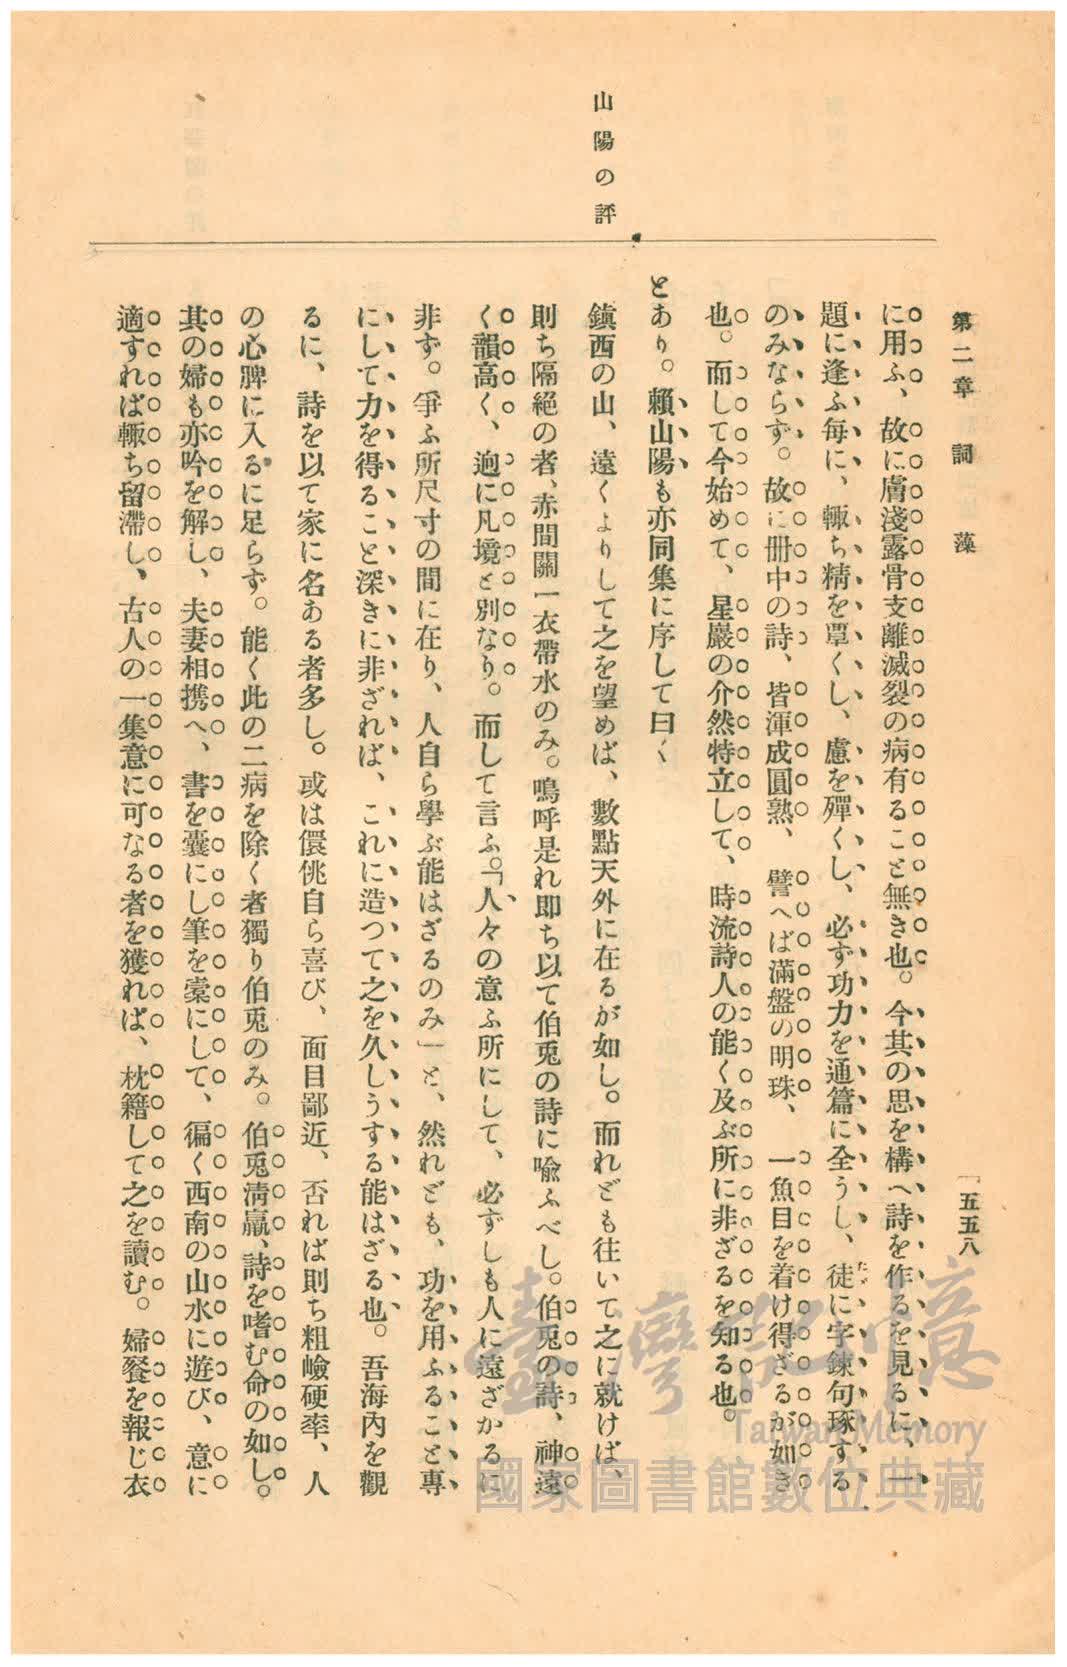 第二章 詞藻
五五八
山陽の評
に用ふ、故に膚淺露骨支離滅裂の病有ること無き也。今其の思を構へ詩を作るを見るに、一
題に逢ふ每に、輙ち精を覃くし、慮を殫くし、必ず功力を通篇に全うし、徒に字鍊句琢する
のみならず。故に册中の詩、皆渾成圓熟、譬へば滿盤の明珠、一魚目を着け得ざるが如き
也。而して今始めて、星巖の介然特立して、時流詩人の能く及ぶ所に非ざるを知る也。
とあり。賴山陽も亦同集に序して曰く
鎭西の山、遠くよりして之を望めば、數點天外に在るが如し。而れども往いて之に就けば、
則ち隔絕の者、赤間關一衣帶水のみ。嗚呼是れ即ち以て伯兎の詩に喩ふべし。伯兎の詩、神遠
く韻高く、逈に凡境と別なり。而して言ふ。「人々の意ふ所にして、必ずしも人に遠ざかるに
非ず。爭ふ所尺寸の間に在り、人自ら學ぶ能はざるのみ」と、然れども、功を用ふること專
にして力を得ること深きに非ざれば、これに造つて之を久しうする能はざる也。吾海內を觀
るに、詩を以て家に名ある者多し。或は儇佻自ら喜び、面目鄙近、否れば則ち粗嶮硬率、人
の心脾に入るに足らず。能く此の二病を除く者獨り伯兎のみ。伯兎淸羸、詩を嗜む命の如し。
其の婦も亦吟を解し、夫妻相携へ、書を囊にし筆を橐にして、徧く西南の山水に遊び、意に
適すれば輙ち留滯し、古人の一集意に可なる者を獲れば、枕籍して之を讀む。婦餐を報じ衣
臺灣記憶
Taiwan Memory
國家圖書館數位典藏